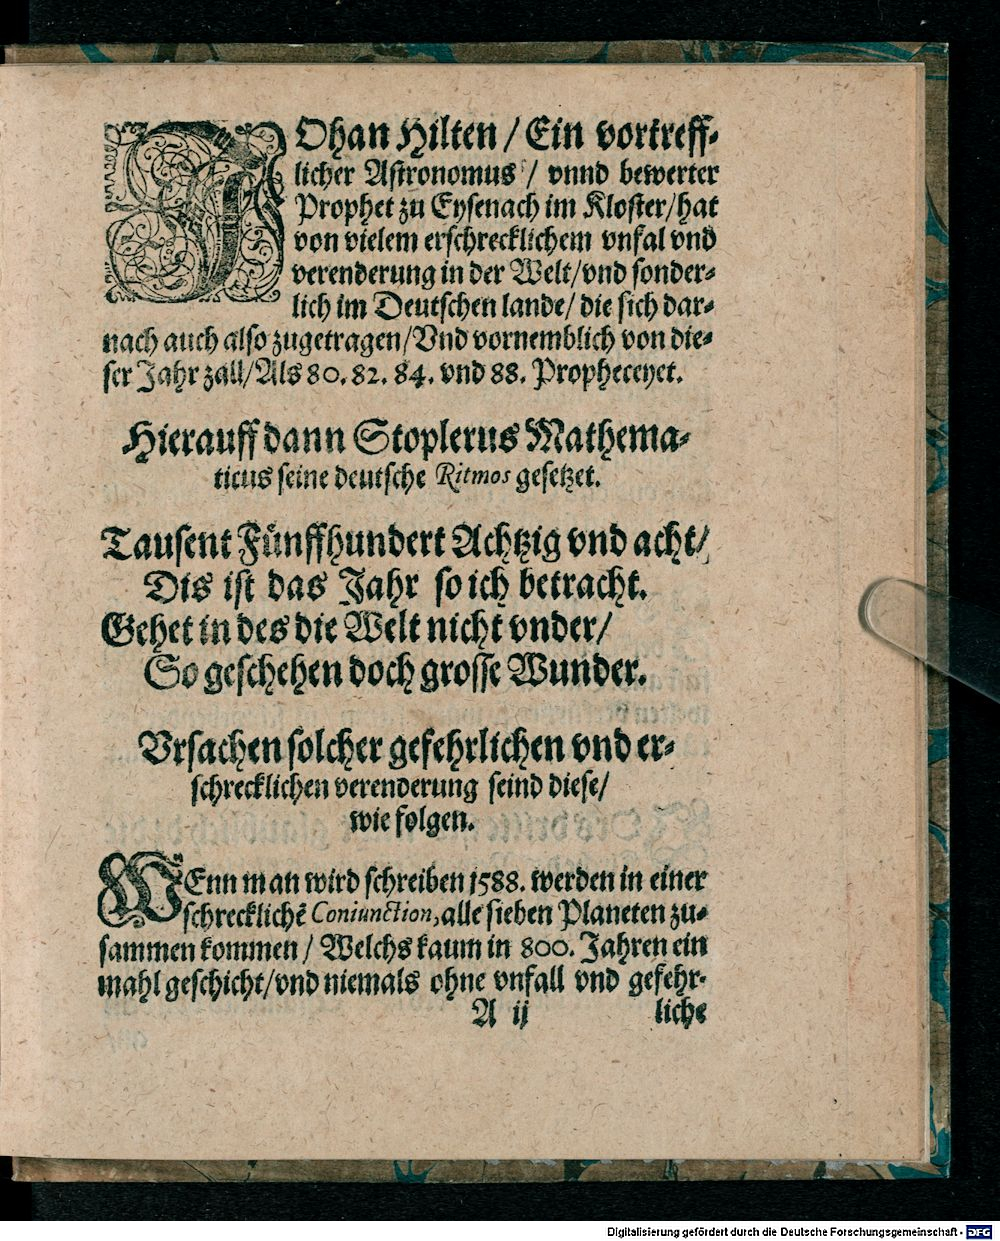 JOhan Hilten / Ein vortreff⸗
licher Astronomus / vnnd bewerter
Prophet zu Eysenach im Kloster / hat
von vielem erschrecklichem vnfal vnd
verenderung in der Welt / vnd sonder⸗
lich im Deutschen lande / die sich dar⸗
nach auch also zugetragen / Vnd vornemblich von die⸗
ser Jahr zall / Als 80. 82. 84. vnd 88. Propheceyet.
Hierauff dann Stoplerus Mathema⸗
ticus seine deutsche Ritmos gesetzet.
Tausent Fünffhundert Achtzig vnd acht /
Dis ist das Jahr so ich betracht.
Gehet in des die Welt nicht vnder /
So geschehen doch grosse Wunder.
Vrsachen solcher gefehrlichen vnd er⸗
schrecklichen verenderung seind diese /
wie folgen.
WEnn man wird schreiben 1588. werden in einer
schrecklichẽ Coniunction, alle sieben Planeten zu⸗
sammen kommen / Welchs kaum in 800. Jahren ein
mahl geschicht / vnd niemals ohne vnfall vnd gefehr⸗
A ij liche
Digitalisierung gefördert durch die Deutsche Forschungsgemeinschaft - DFG